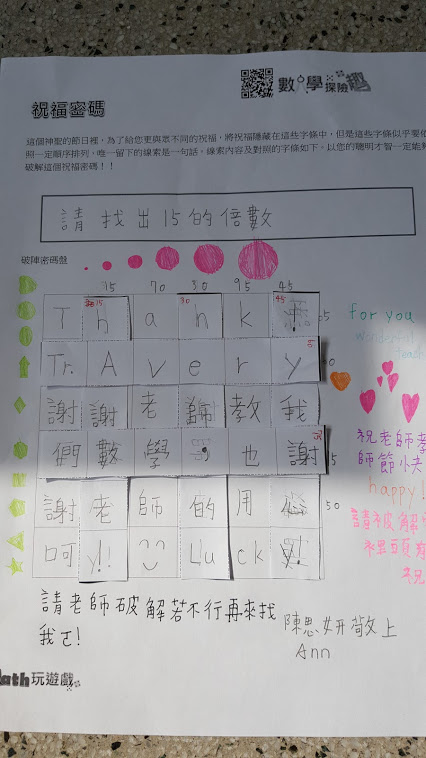 數學探險趣
祝福密碼
這個神聖的節日裡，為了給您更與眾不同的祝福，將祝福隱藏在這些字條中，但是這些字條似乎要依
照一定順序排列，唯一留下的線索是一句話，線索內容及對照的字條如下，以您的聰明才智一定能夠
破解這個祝福密碼！！
請找出15的倍數
破陣密碼盤
15 70 30 95 45
T h a n k
for you
Wonderful
teach
Tr. A v e r y 5
謝 謝 老 師 教 我
們 數 學 也 謝
祝老師孝
師節小夫
happy!
謝 老 師 的 用 心 50
請被解
呵 y!! Lu ck y!!
祝
請老師破解若不行再來找
我ㄛ!
陳思妍敬上
Ann
Math玩遊戲